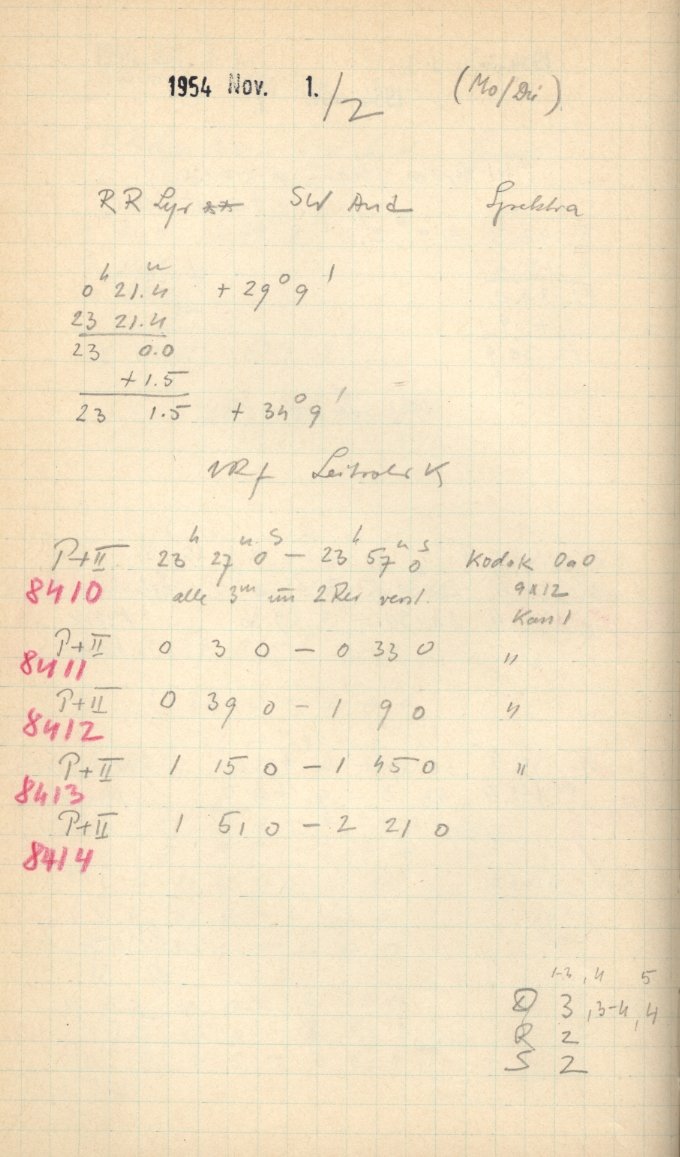 1954 Nov. 1./2 (Mo/Di)
RR Lyr ** SW And Spektra
0h 21.4m + 29° 9'
23 21.4
23 0.0
+ 1.5
23 1.5 + 34° 9'
Leitrohr K
P+II 23h 27m 0s – 23h 57m 0s Kodak 0a0
8410 alle 3m um 2 Rev verst. 9x12
Kass 1
P+II 0 3 0 – 0 33 0 "
8411
P+II 0 39 0 – 1 9 0 "
8412
P+II 1 15 0 – 1 45 0 "
8413
P+II 1 51 0 – 2 21 0
8414
1-3, 4 5
3, 3-4, 4
R 2
S 2